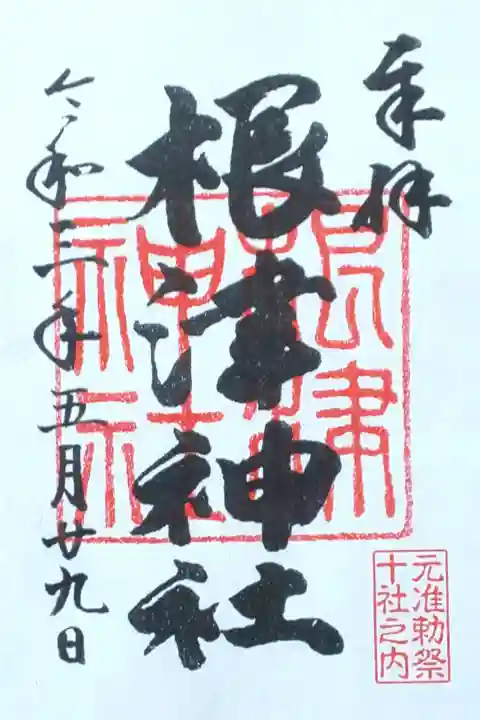 奉拝
根津神社
根津神社
令和三年五月廿九日
元准勅祭
十社之内